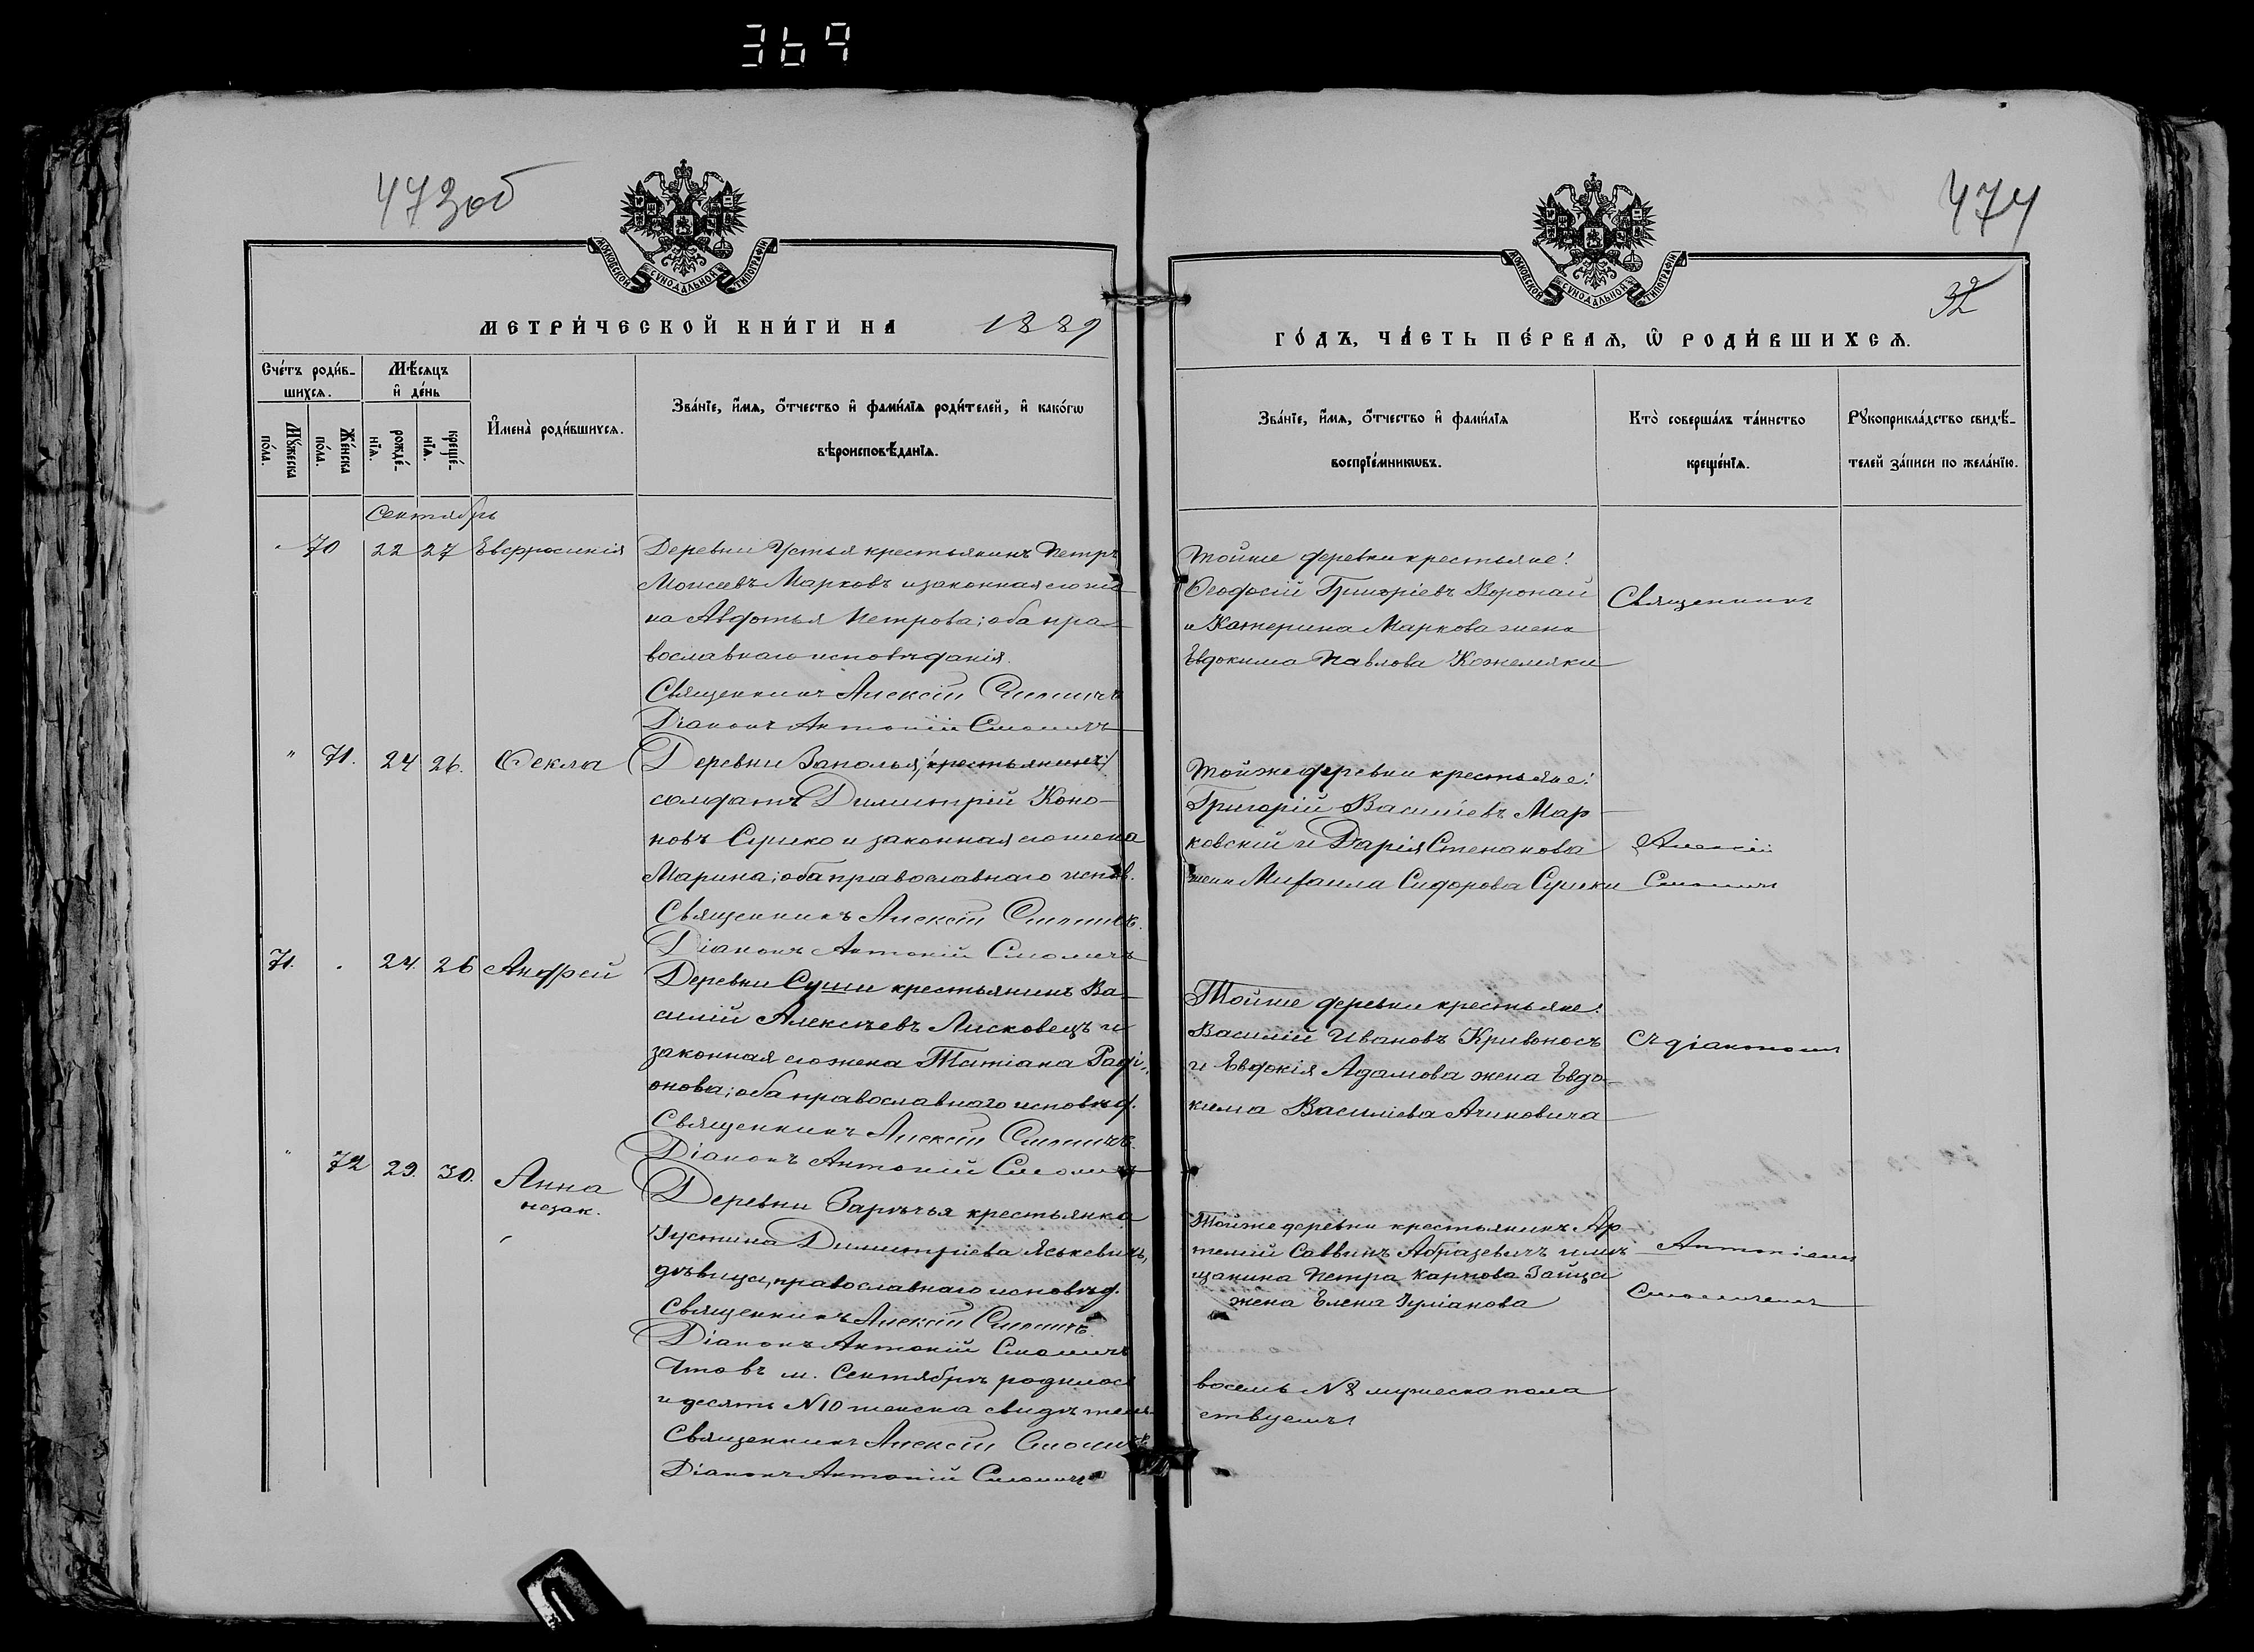 369
473об
МОСКОВСКОЙ СУНОДАЛЬНОЙ ТИПОГРАФІИ
МЕТРИ́ЧЕСКОЙ КНИ́ГИ НА 1889
Сче́тъ роди́в-
шихсѧ.
Мѣ́сѧцъ
и҆ де́нь
Мꙋ́жеска
по́ла.
Же́нска
по́ла.
рожде́-
нїѧ.
креще́-
нїѧ.
И҆мена̀ роди́вшихсѧ.
Зва́нїе, и҆́мѧ, ѻ҆́тчество и҆ фами́лїѧ роди́телей, и҆ како́гѡ
вѣроисповѣ́данїѧ.
Сентябрь
" 70 22 27 Евфросинія
Деревни Устья крестьянинъ Петръ
Моисеевъ Марковъ и законная его же-
на Авдотья Петрова; оба пра-
вославнаго исповѣданія.
Священникъ Алексій Смоличъ
Діаконъ Антоній Смоличъ
" 71. 24 26. Ѳекла
Деревни Заполья, /крестьянинъ/
солдатъ Димитрій Коно-
новъ Сушко и законная его жена
Марина; оба православнаго испов.
Священникъ Алексій Смоличъ.
Діаконъ Антоній Смоличъ
71. " 24. 26 Андрей
Деревни Суши крестьянинъ Ва-
силій Алексѣевъ Лисковецъ и
законная его жена Татіана Радi-
онова; оба православнаго исповѣд.
Священникъ Алексій Смоличъ.
Діаконъ Антоній Смоличъ
" 72 29. 30. Анна
незак.
Деревни Зарѣчья крестьянка
Іустина Димитріева Яськевичъ,
дѣвица, православнаго исповѣд.
Священникъ Алексій Смоличъ.
Діаконъ Антоній Смоличъ
Что въ м. Сентябрѣ родилось
и десять №10 женска свидѣтель-
Священникъ Алексій Смоличъ
Діаконъ Антоній Смоличъ
474
32
МОСКОВСКОЙ СУНОДАЛЬНОЙ ТИПОГРАФІИ
ГО́ДЪ, ЧА́СТЬ ПЕ́РВАѦ, Ѽ РОДИ́ВШИХСѦ.
Зва́нїе, и҆́мѧ, ѻ҆́тчество и҆ фами́лїѧ
воспрїе́мникѡвъ.
Кто̀ соверша́лъ та́инство
креще́нїѧ.
Рꙋкоприкла́дство свидѣ́-
телей за́писи по жела́нїю.
Тойже деревни крестьяне:
Ѳеодосій Григоріевъ Воронай
и Катерина Маркова жена
Евдокима Павлова Кожемяки
Священникъ
Тойже деревни крестьяне:
Григорій Василіевъ Мар-
ковскій и Дарія Степанова
жена Михаила Сидорова Сушки
Алексій
Смоличъ
Тойже деревни крестьяне:
Василій Ивановъ Кривоносъ
и Евдокія Адамова жена Евдо-
кима Василіева Ачиновича
съ діакономъ
Тойже деревни крестьянинъ Ар-
темій Саввинъ Абразевичъ и мѣ-
щанина Петра Карпова Зайца
жена Елена Іуліанова
Антоніемъ
Смоличемъ
восемь №8 мужеска пола
ствуемъ